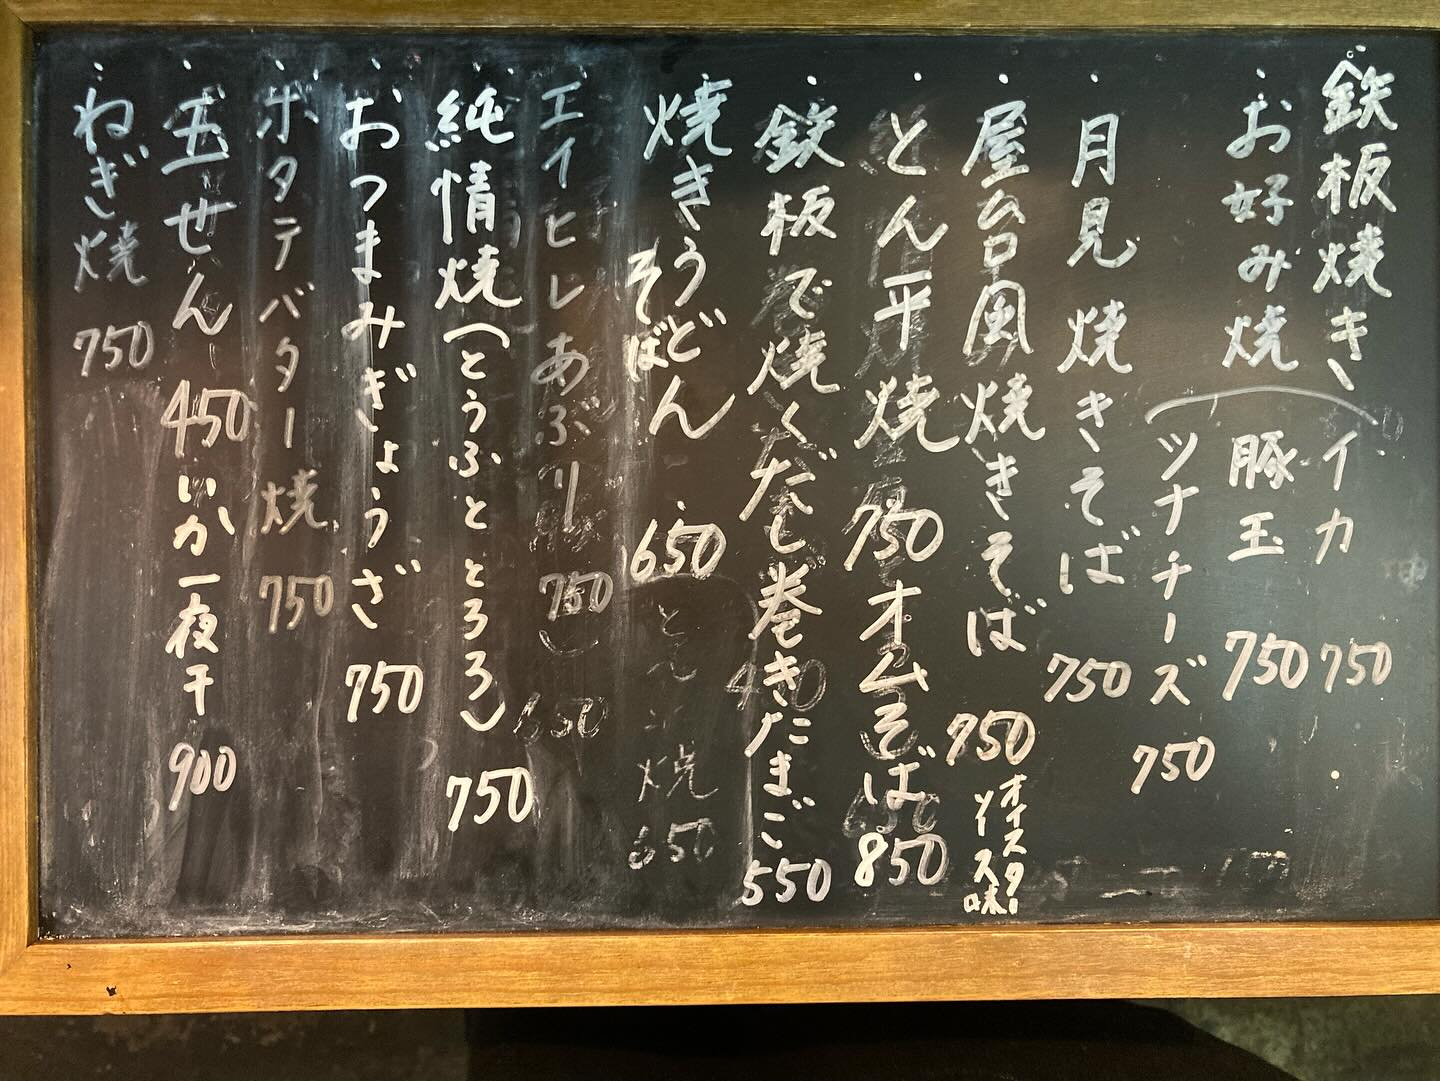 ・鉄板焼き
・お好み焼（イカ 750
豚玉 750
ツナチーズ 750
・月見焼きそば 750
・屋台風焼きそば 750 オイスターソース味
・とん平焼 750 オムそば 850
・鉄板で焼くだし巻きたまご 550
・焼きうどん 650
そばん
・エイヒレあぶり 750
・純情焼（とうふととろろ） 750
・おつまみぎょうざ 750
・ホタテバター焼 750
・玉せん 450 いか一夜干 900
・ねぎ焼 750